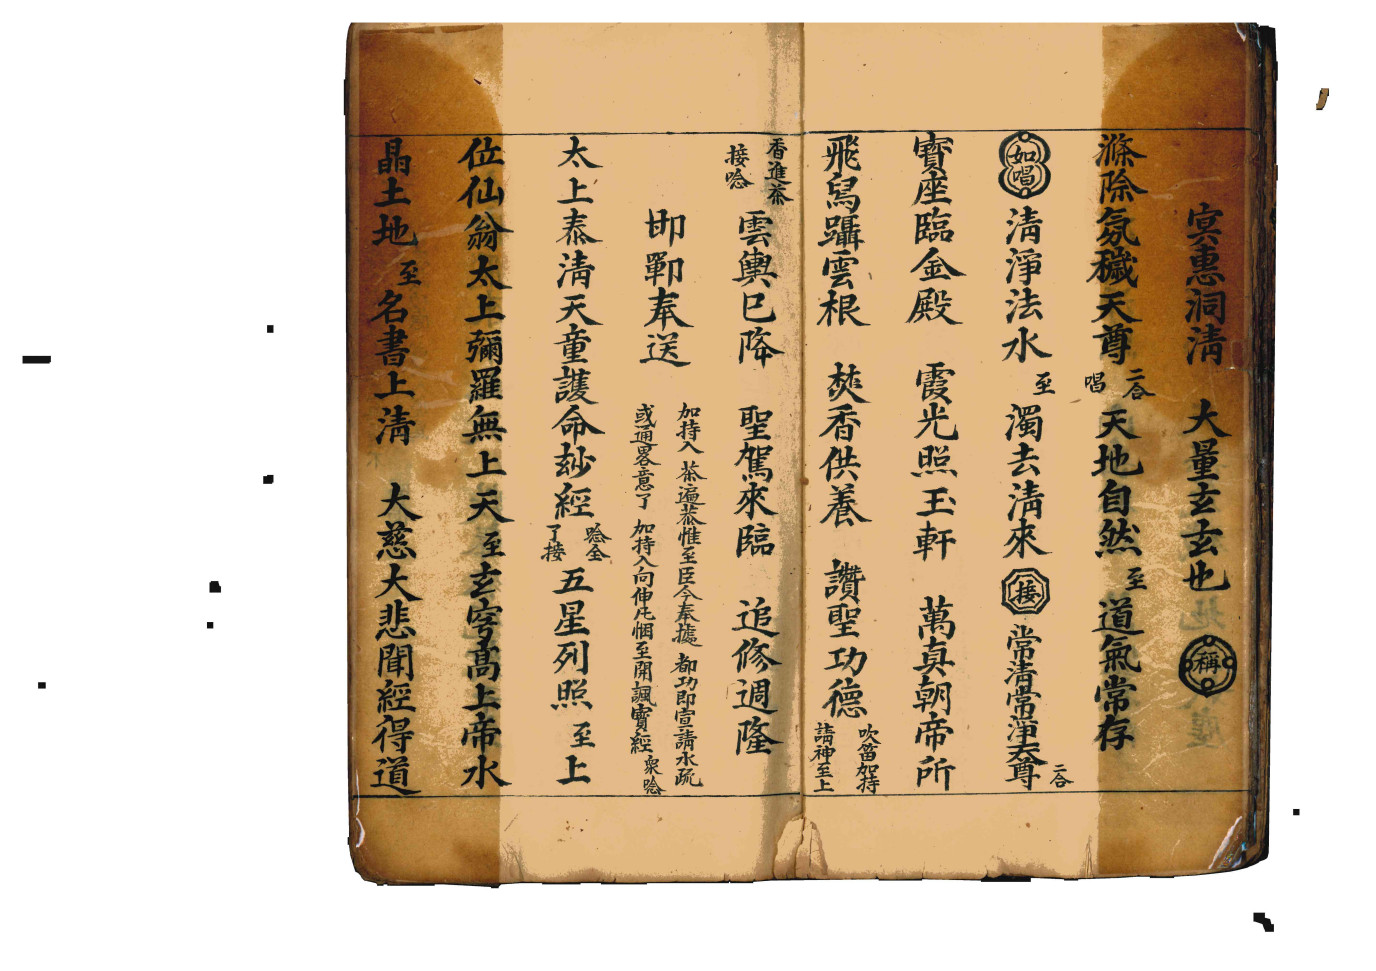 冥惠洞清　大量玄玄也　稱
滌除氛穢天尊　二合唱　天地自然　至　道氣常存
如唱　清淨法水　至　濁去清來　接　常清常淨天尊　二合
寶座臨金殿　霞光照玉軒　萬真朝帝所
飛舄躡雲根　焚香供養　讚聖功德　吹笛加持請神至上
香進茶接唸　雲輿已降　聖駕來臨　追修週隆
即鄿奉送　加持入　茶遍恭惟至臣今奉據　都功即宣請水疏
或通畧意了　加持入向伸凡悃至開諷寶經　衆唸
太上泰清天童護命玅經　唸全了接　五星列照　至　上
位仙翁太上彌羅無上天　至　玄穹高上帝水
晶土地　至　名書上清　大慈大悲聞經得道